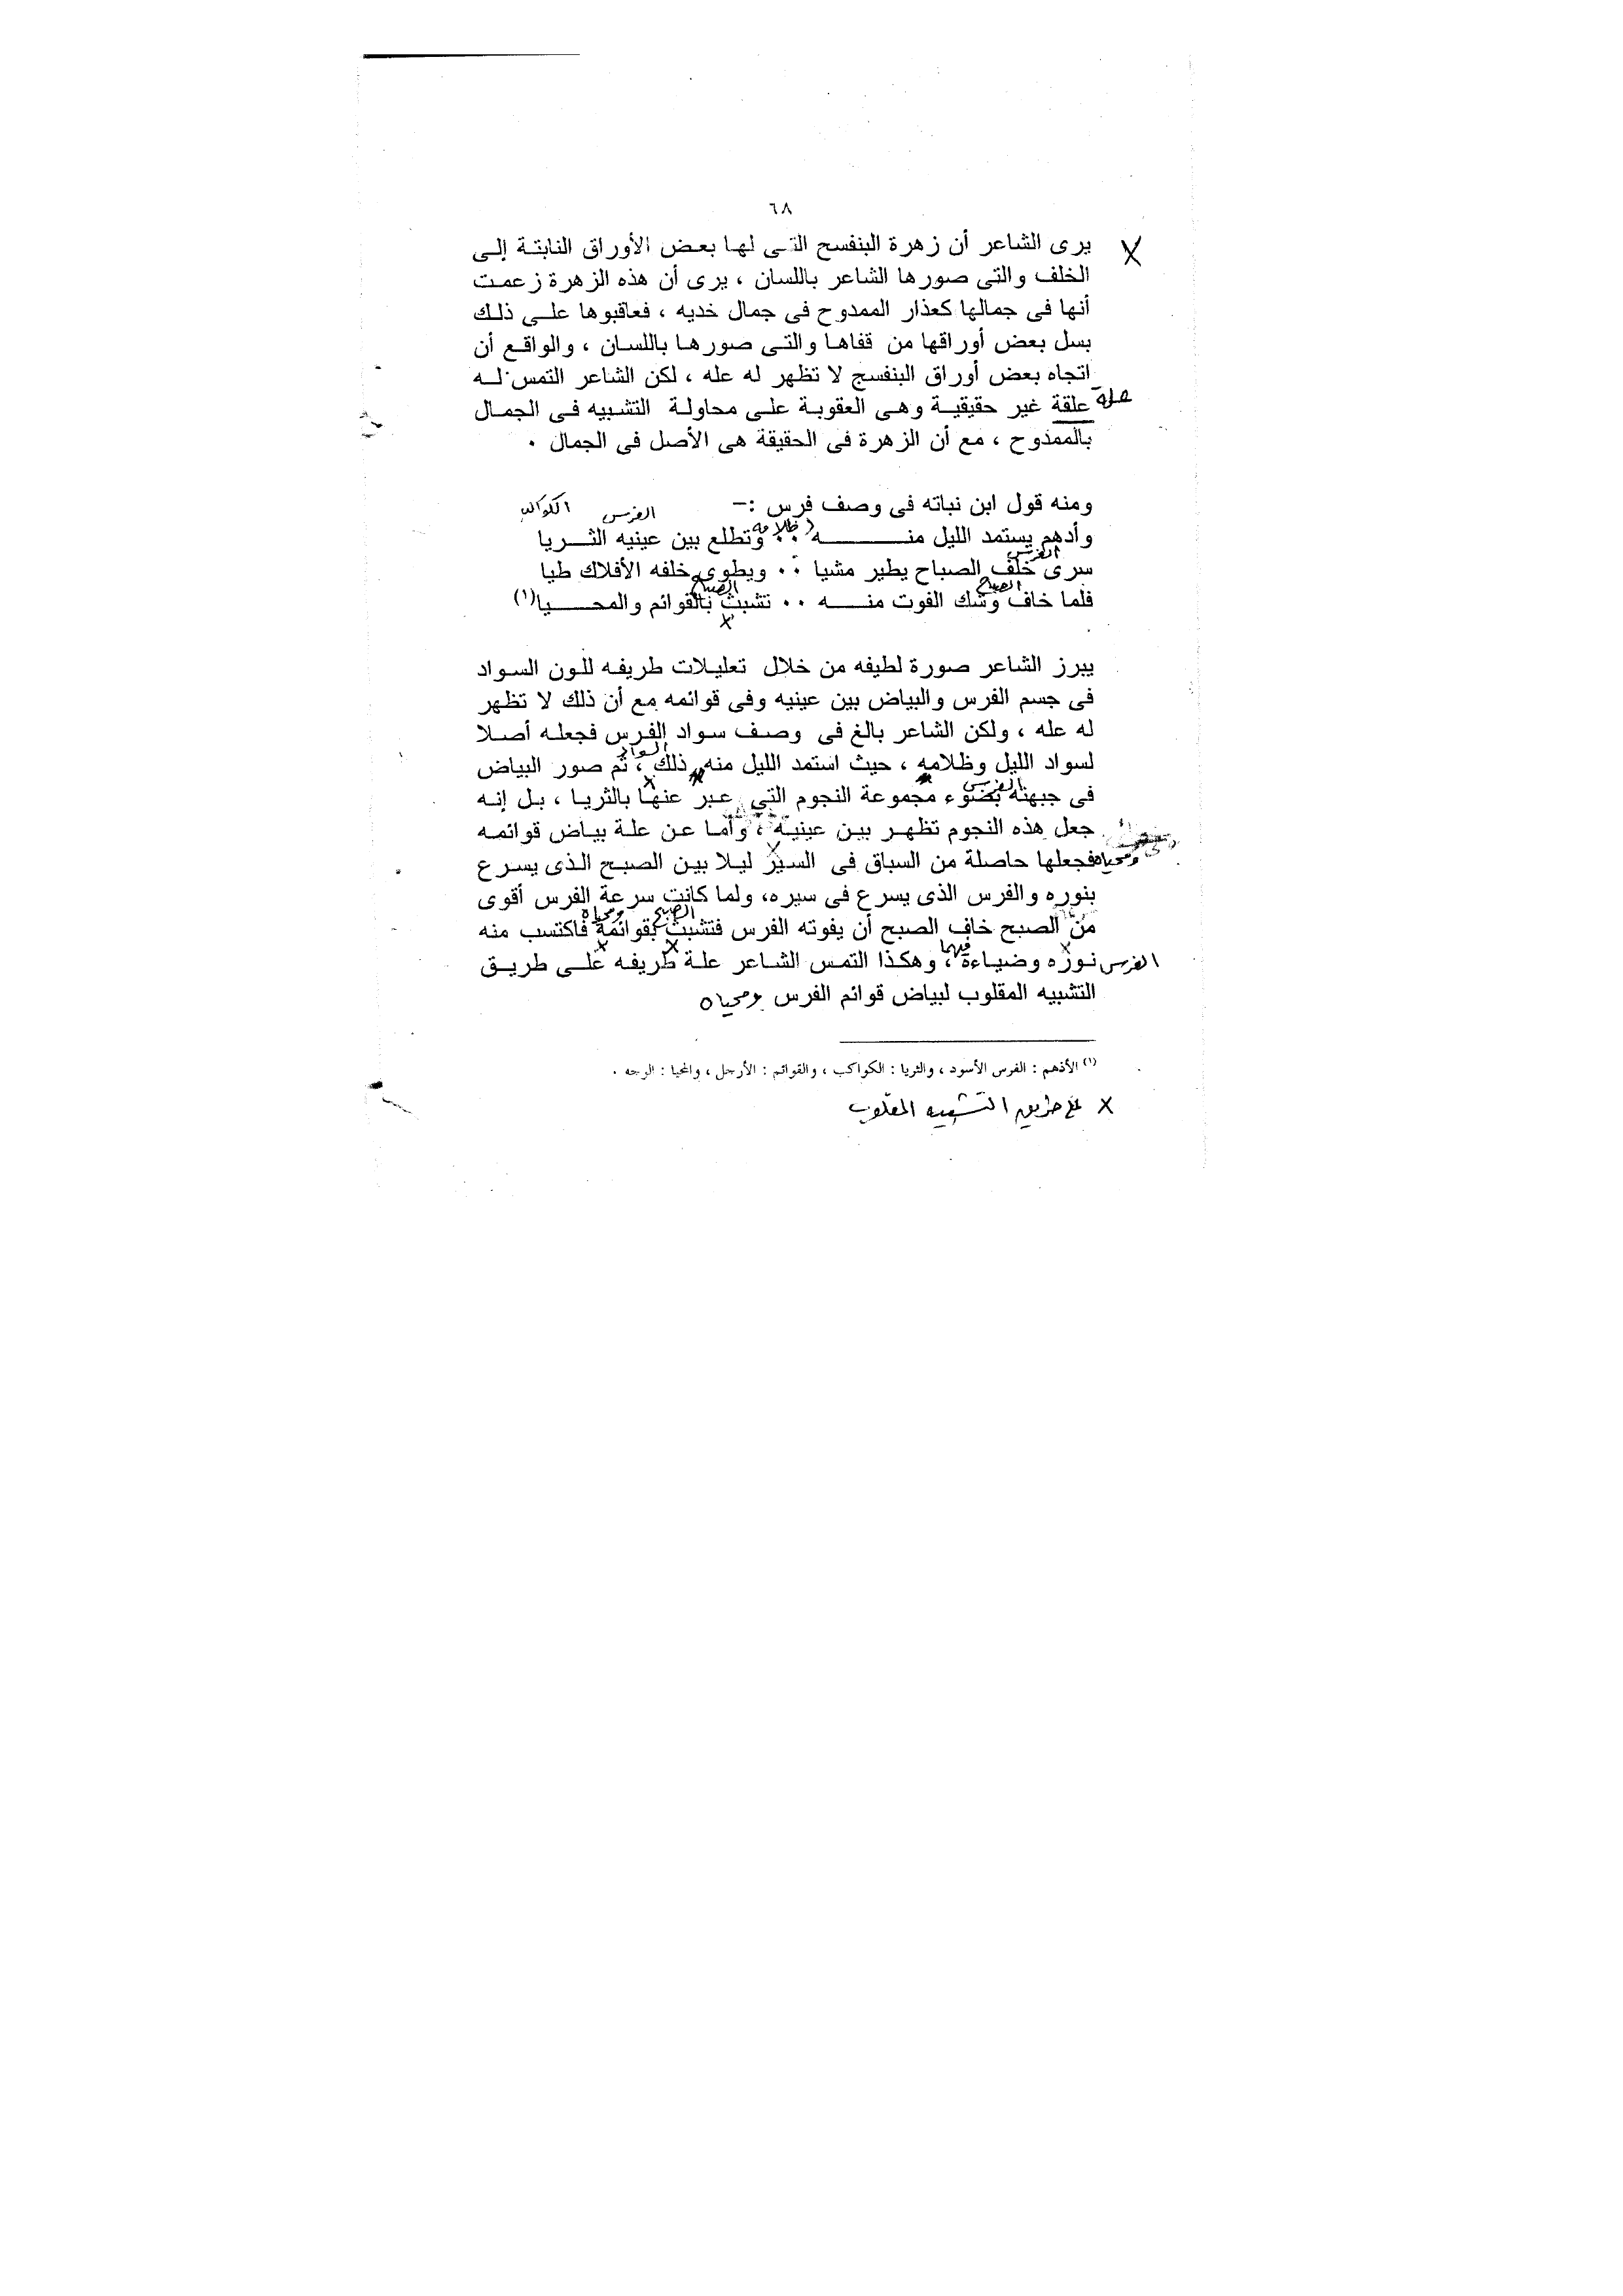 ٦٨
يرى الشاعر أن زهرة البنفسج التى لها بعض الأوراق النابتة إلى
الخلف والتى صورها الشاعر باللسان ، يرى أن هذه الزهرة زعمت
أنها فى جمالها كعذار الممدوح فى جمال خديه ، فعاقبوها على ذلك
بسل بعض أوراقها من قفاها والتى صورها باللسان ، والواقع أن
اتجاه بعض أوراق البنفسج لا تظهر له عله ، لكن الشاعر التمس له
علة
علقة غير حقيقية وهى العقوبة على محاولة التشبيه فى الجمال
بالممدوح ، مع أن الزهرة فى الحقيقة هى الأصل فى الجمال .
ومنه قول ابن نباته فى وصف فرس :-
الفرس الكواكب
ظلامه
وأدهم يستمد الليل منه .. وتطلع بين عينيه الثريا
الفرس
سرى خلف الصباح يطير مشيا .. ويطوى خلفه الأفلاك طيا
الصبح الصبح
فلما خاف وشك الفوت منه .. تشبث بالقوائم والمحيا(١)
يبرز الشاعر صورة لطيفه من خلال تعليلات طريفه للون السواد
فى جسم الفرس والبياض بين عينيه وفى قوائمه مع أن ذلك لا تظهر
له عله ، ولكن الشاعر بالغ فى وصف سواد الفرس فجعله أصلا
السواد
لسواد الليل وظلامه ، حيث استمد الليل منه ذلك ، ثم صور البياض
الفرس
فى جبهته بضوء مجموعة النجوم التي عبر عنها بالثريا ، بل إنه
جعل هذه النجوم تظهر بين عينيه ، وأما عن علة بياض قوائمه
ومحياه
فجعلها حاصلة من السباق فى السير ليلا بين الصبح الذى يسرع
بنوره والفرس الذى يسرع فى سيره، ولما كانت سرعة الفرس أقوى
الصبح ومحياه
من الصبح خاف الصبح أن يفوته الفرس فتشبث بقوائمه فاكتسب منه
الفرس فيهما
نوره وضياءه ، وهكذا التمس الشاعر علة طريفه على طريق
التشبيه المقلوب لبياض قوائم الفرس ومحياه
(١) الأذهم : الفرس الأسود ، والثريا : الكواكب ، والقوائم : الأرجل ، والمحيا : الوجه .
× على طريق التشبيه المقلوب